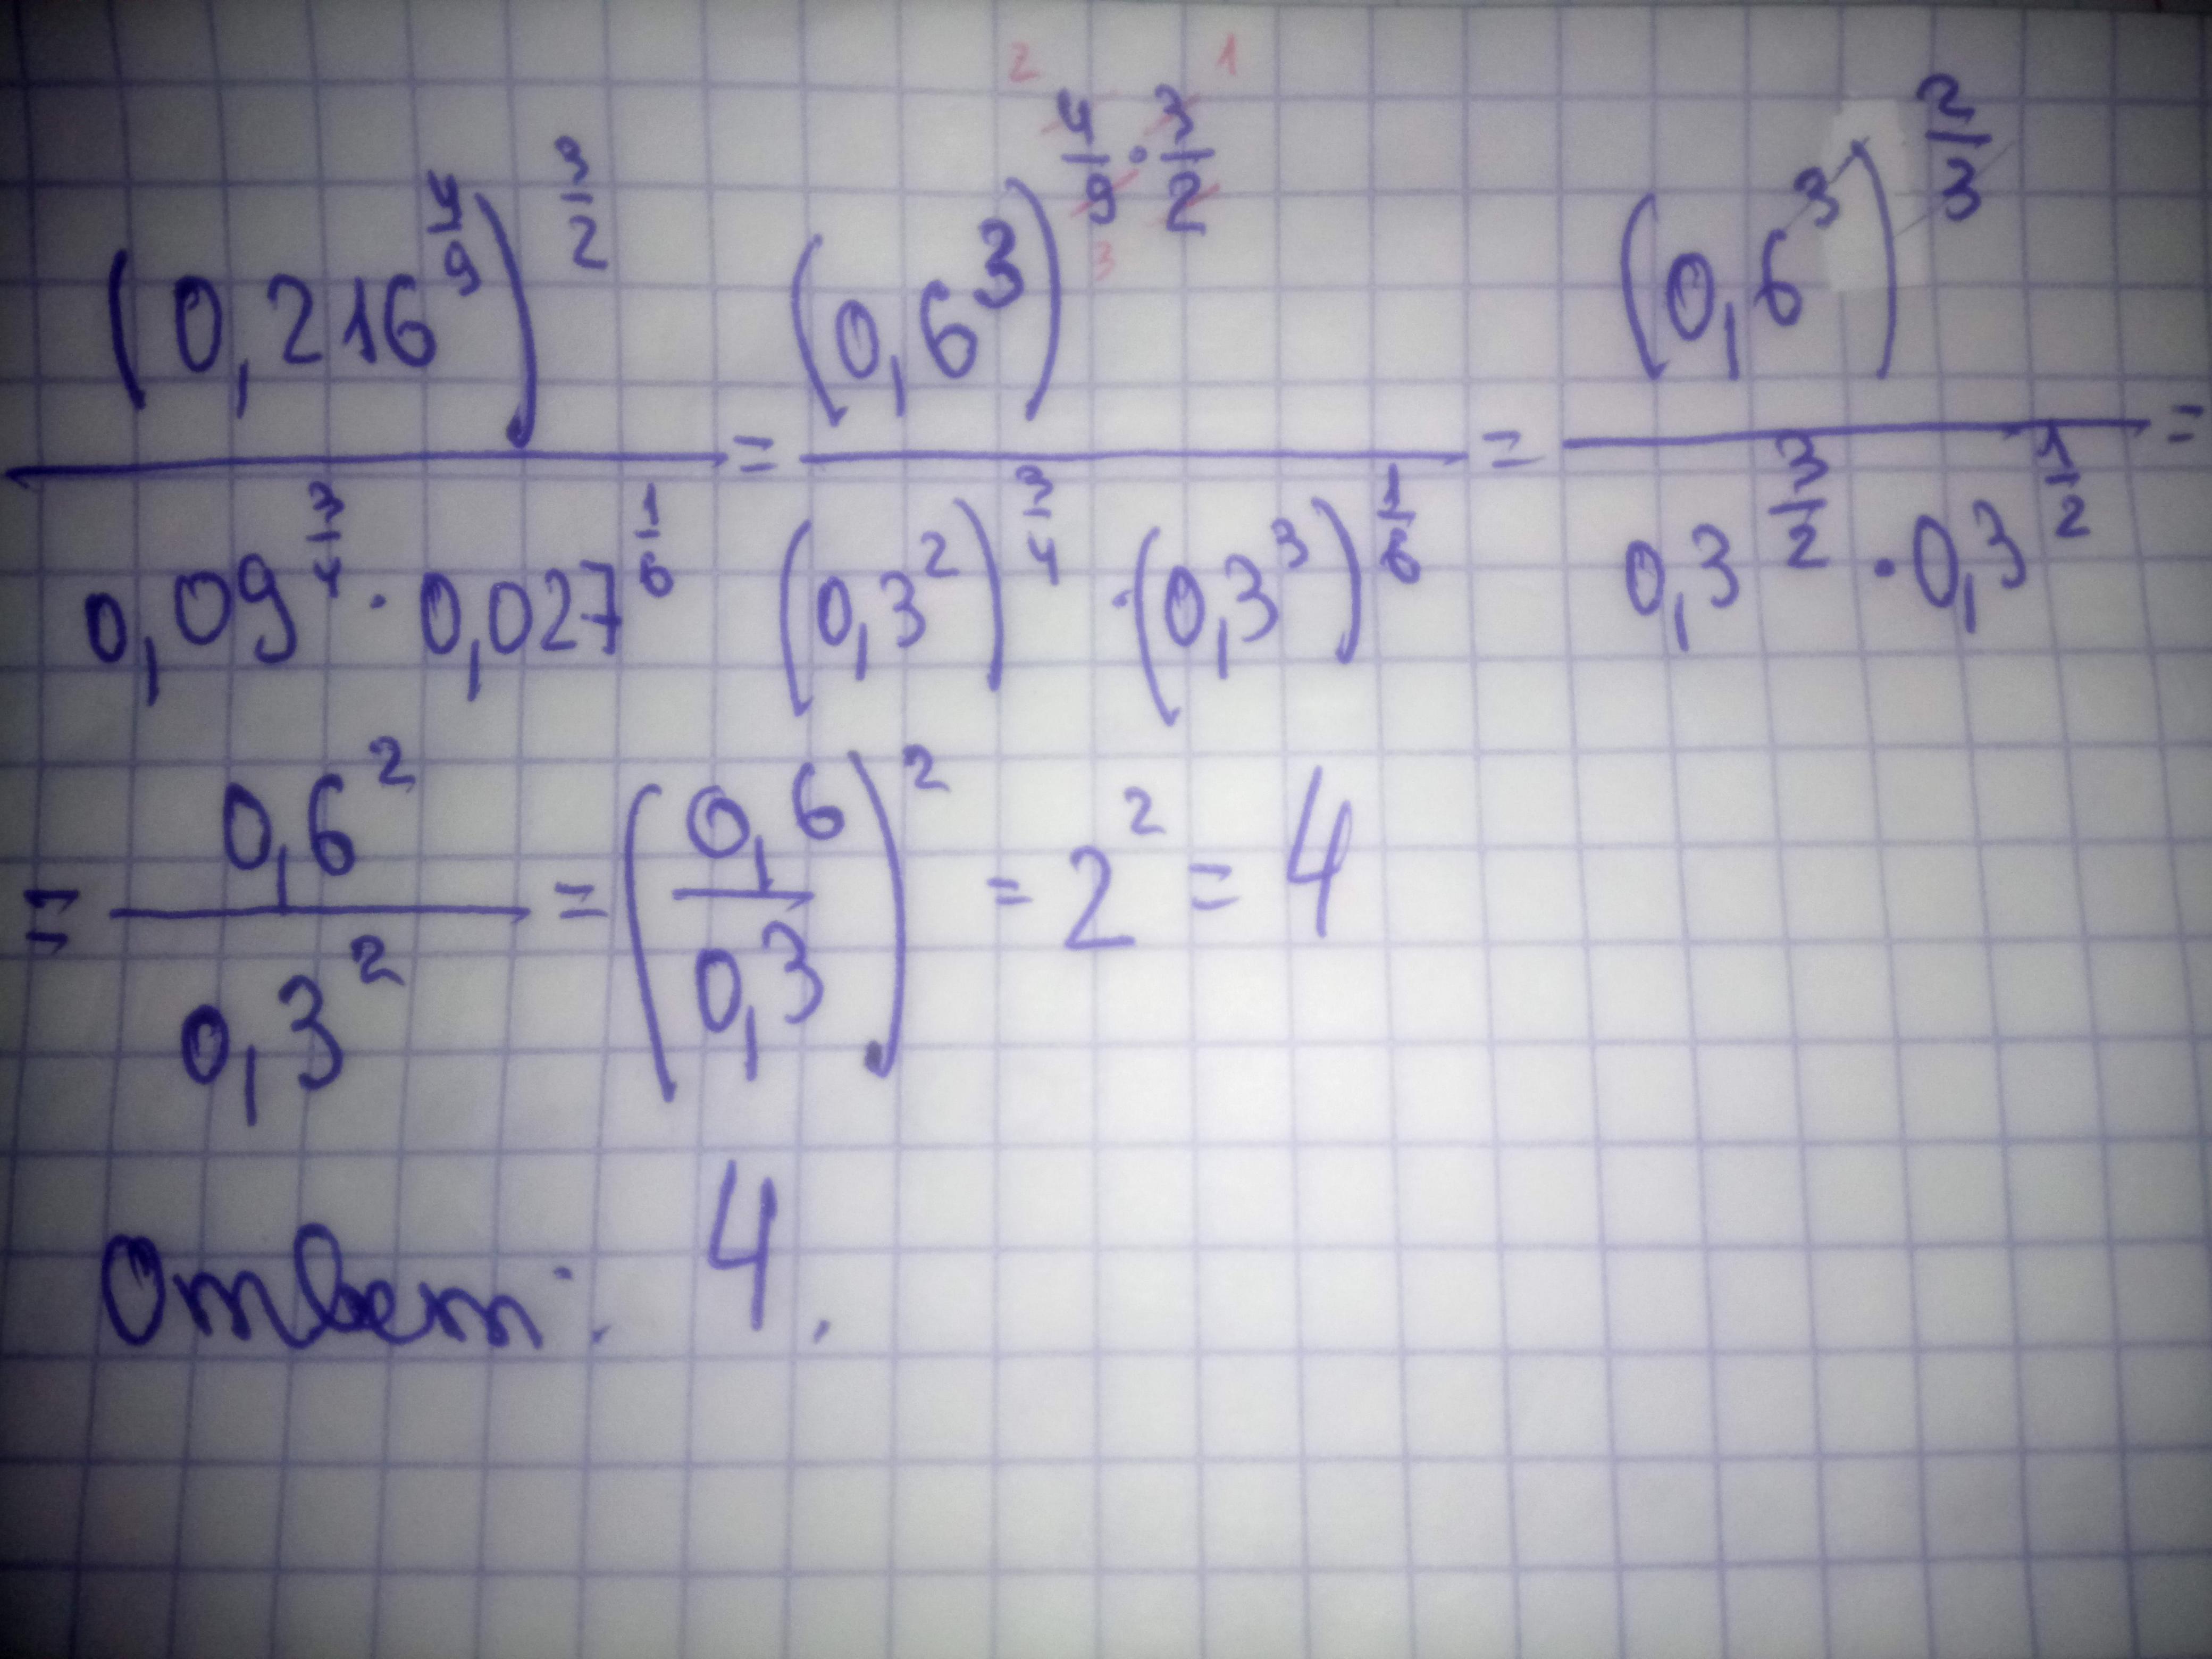 (0,216^(4/9))^(3/2) / (0,09^(3/4) · 0,027^(1/6)) = (0,6^3)^(4/9 · 3/2) / ((0,3^2)^(3/4) · (0,3^3)^(1/6)) = (0,6^3)^(2/3) / (0,3^(3/2) · 0,3^(1/2)) =
= 0,6^2 / 0,3^2 = (0,6 / 0,3)^2 = 2^2 = 4
Ответ: 4.